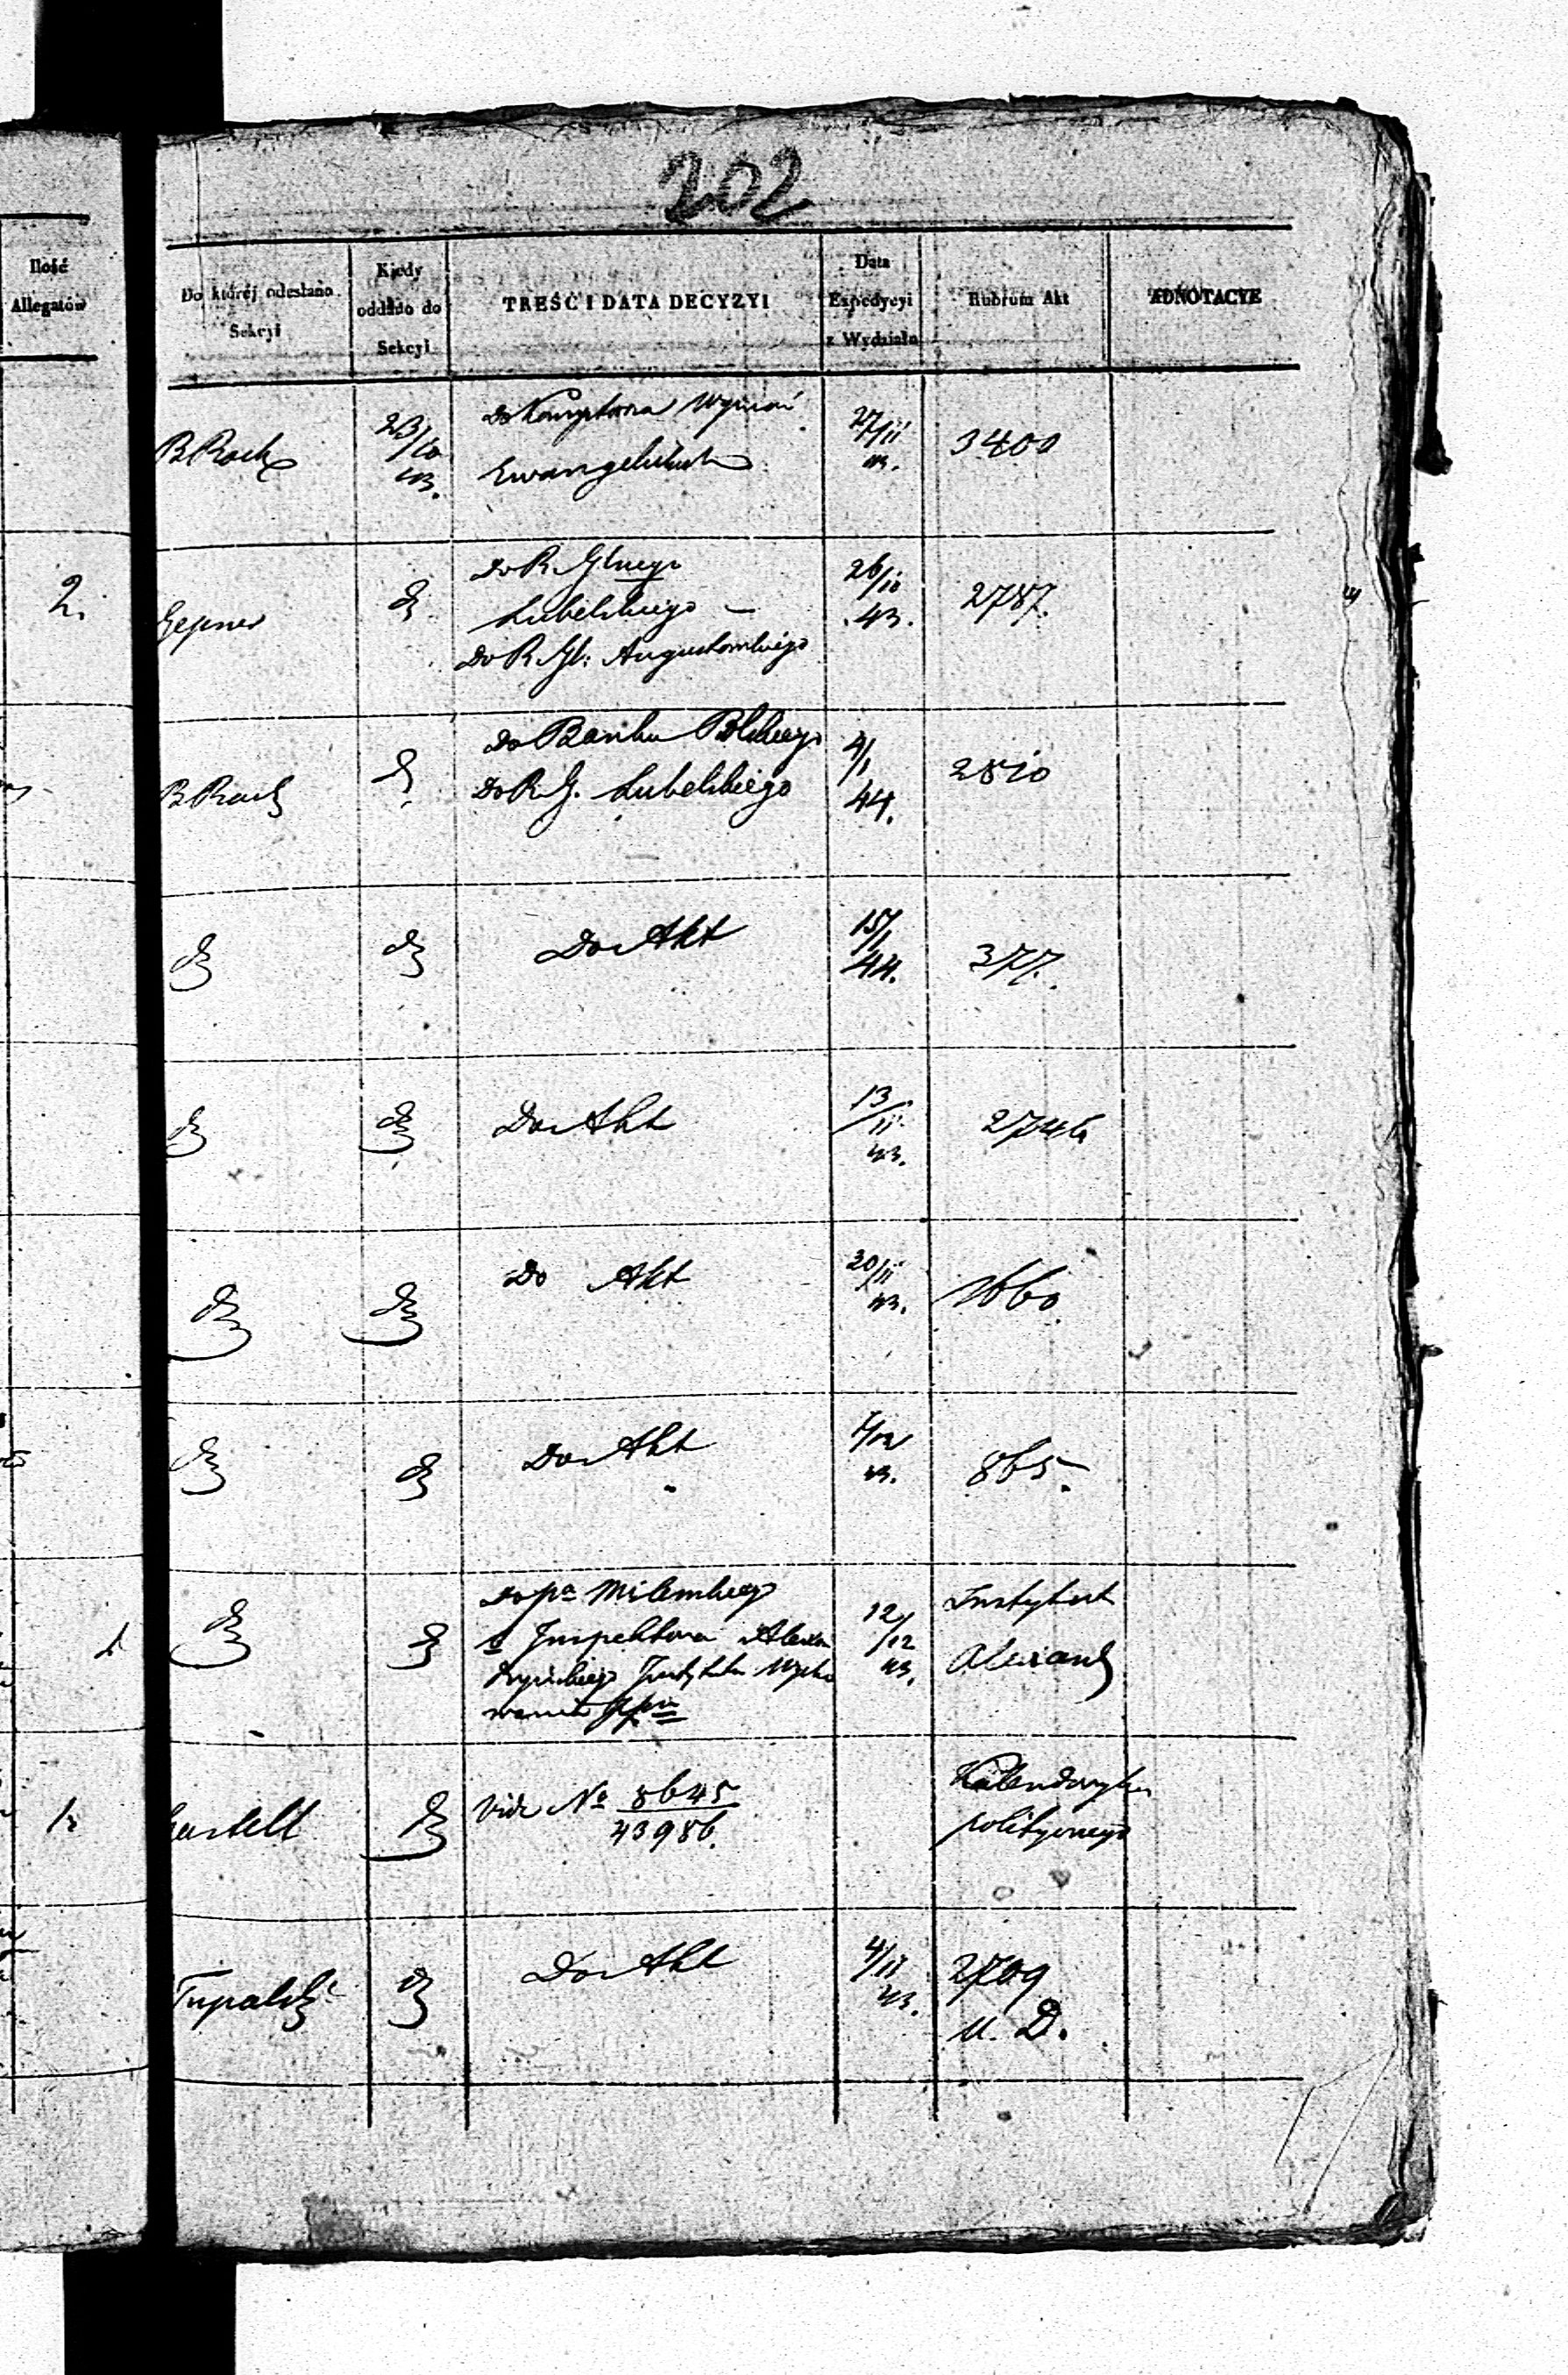 202
Ilość
Allegatów
Do której odesłano
Sekcyi
Kiedy
oddano do
Sekcyi
TREŚĆ I DATA DECYZYI
Data
Expedycyi
z Wydziału
Rubrum Akt
ADNOTACYE
23/10
43.
Do Konsystorza Wyznań
Ewangelickich
27/11
43.
3400
2.
Gepner
Do R. Glnego
Lubelskiego —
Do R. Gl: Augustowskiego
26/10
43.
2787.
Do Banku Polskiego
Do R. G. Lubelskiego
4/1
44.
2810
Do Akt
15/1
44.
377.
Do Akt
13/11
43.
2746
Do Akt
30/11
43.
1660
Do Akt
43.
865.
1
Do pa
Inspektora Alexan
dryjskiego Instytutu Wycho
wania
12/12
43.
Instytut
Alexand
Vide No 8645
43986.
Kalendarzyka
politycznego
Do Akt
4/11
43.
2709